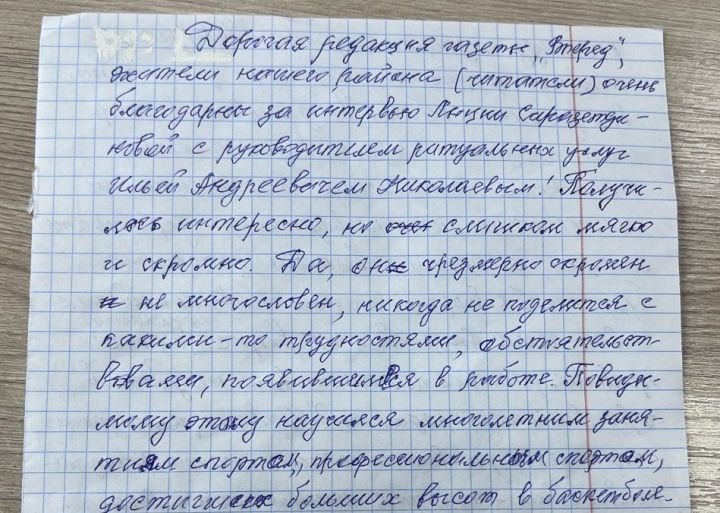 Дорогая редакция газеты „Вперед",
жители нашего района (читатели) очень
благодарны за интервью Янции Сирацетди-
новой с руководителем ритуальных услуг
Ильей Андреевичем Николаевым! Получи-
лось интересно, но слишком мягко
и скромно. Да, он чрезмерно скромен
не многословен, никогда не поделится с
какими-то трудностями, обстоятельст-
вами, появившимися в работе. Повиди-
мому этому научился многолетним заня-
тиям спортом, профессиональным спортом,
достигших больших высот в баскетболе.